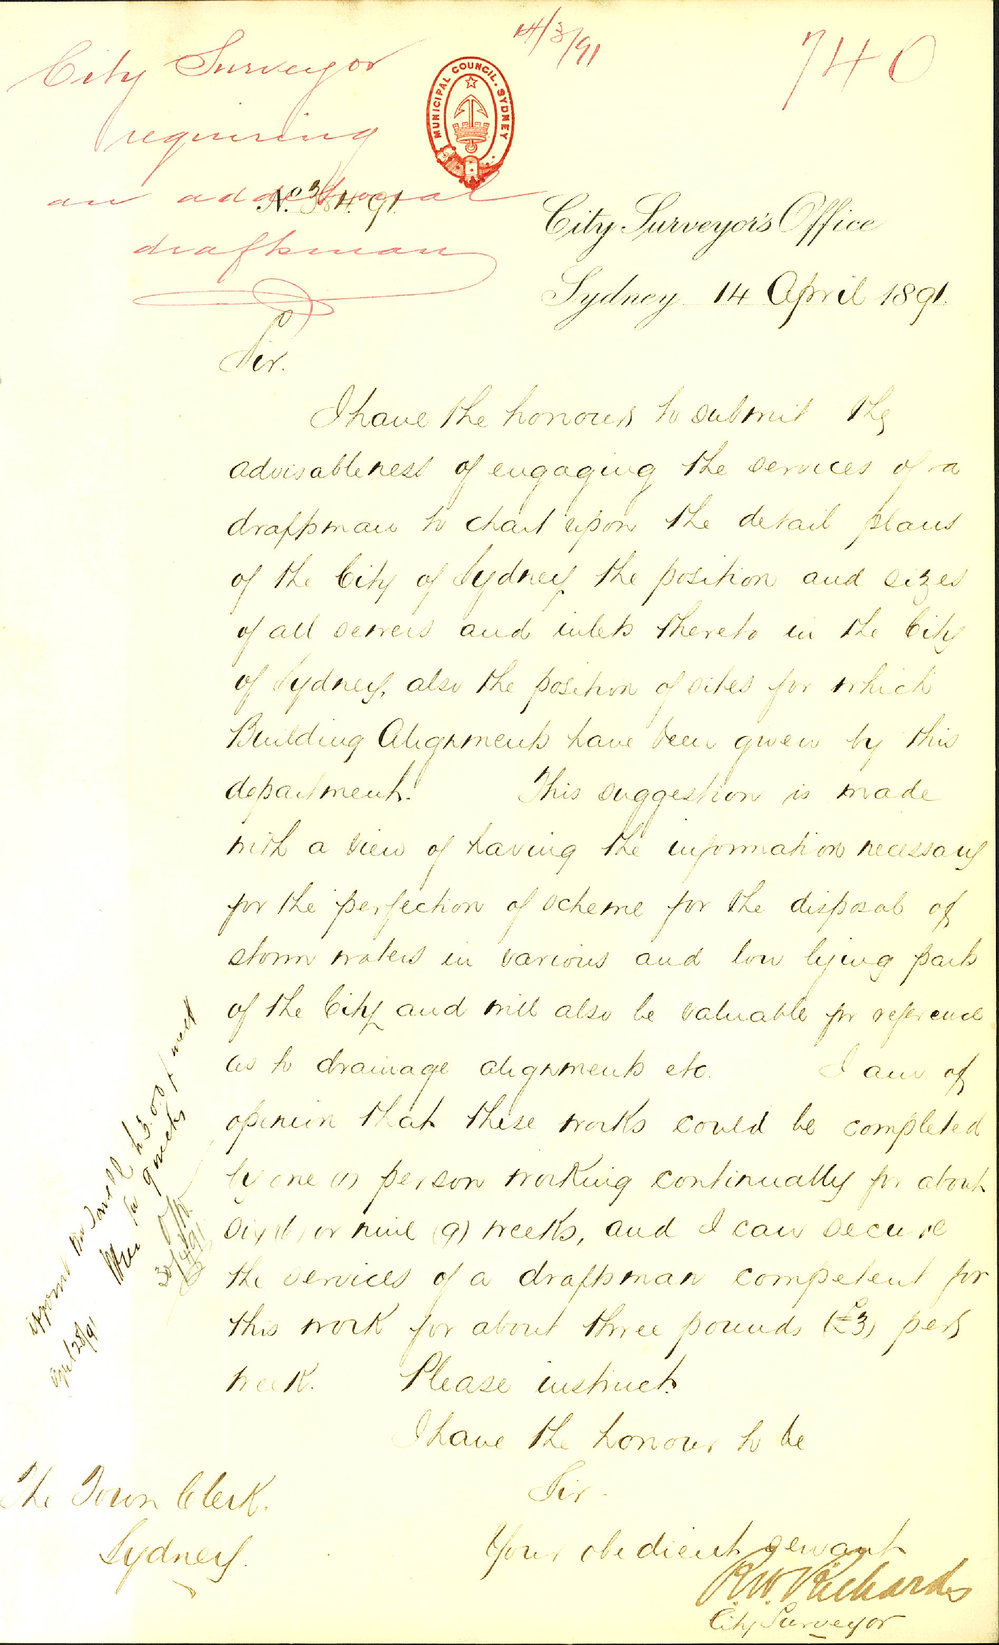 14/3/91
740
City Surveyor
requiring
an additional
draftsman
MUNICIPAL COUNCIL. SYDNEY
No. 384.91.
City Surveyor's Office
Sydney 14 April 1891.
Sir.
I have the honour to submit the
advisableness of engaging the services of a
draftsman to chart upon the detail plans
of the City of Sydney the position and sizes
of all sewers and inlets thereto in the City
of Sydney, also the position of sites for which
Building Alignments have been given by this
department. This suggestion is made
with a view of having the information necessary
for the perfection of scheme for the disposal of
storm waters in various and low lying parts
of the City and will also be valuable for reference
as to drainage alignments etc. I am of
opinion that these works could be completed
by one (1) person working continually for about
or nine (9) weeks, and I can secure
the services of a draftsman competent for
this work for about three pounds (£3) per
week. Please instruct.
I have the honour to be
Sir.
Your obedient servant
R.W. Richards
City Surveyor
The Town Clerk.
Sydney.
Appoint Mr
for 9 weeks
April 28/91
30/4/91